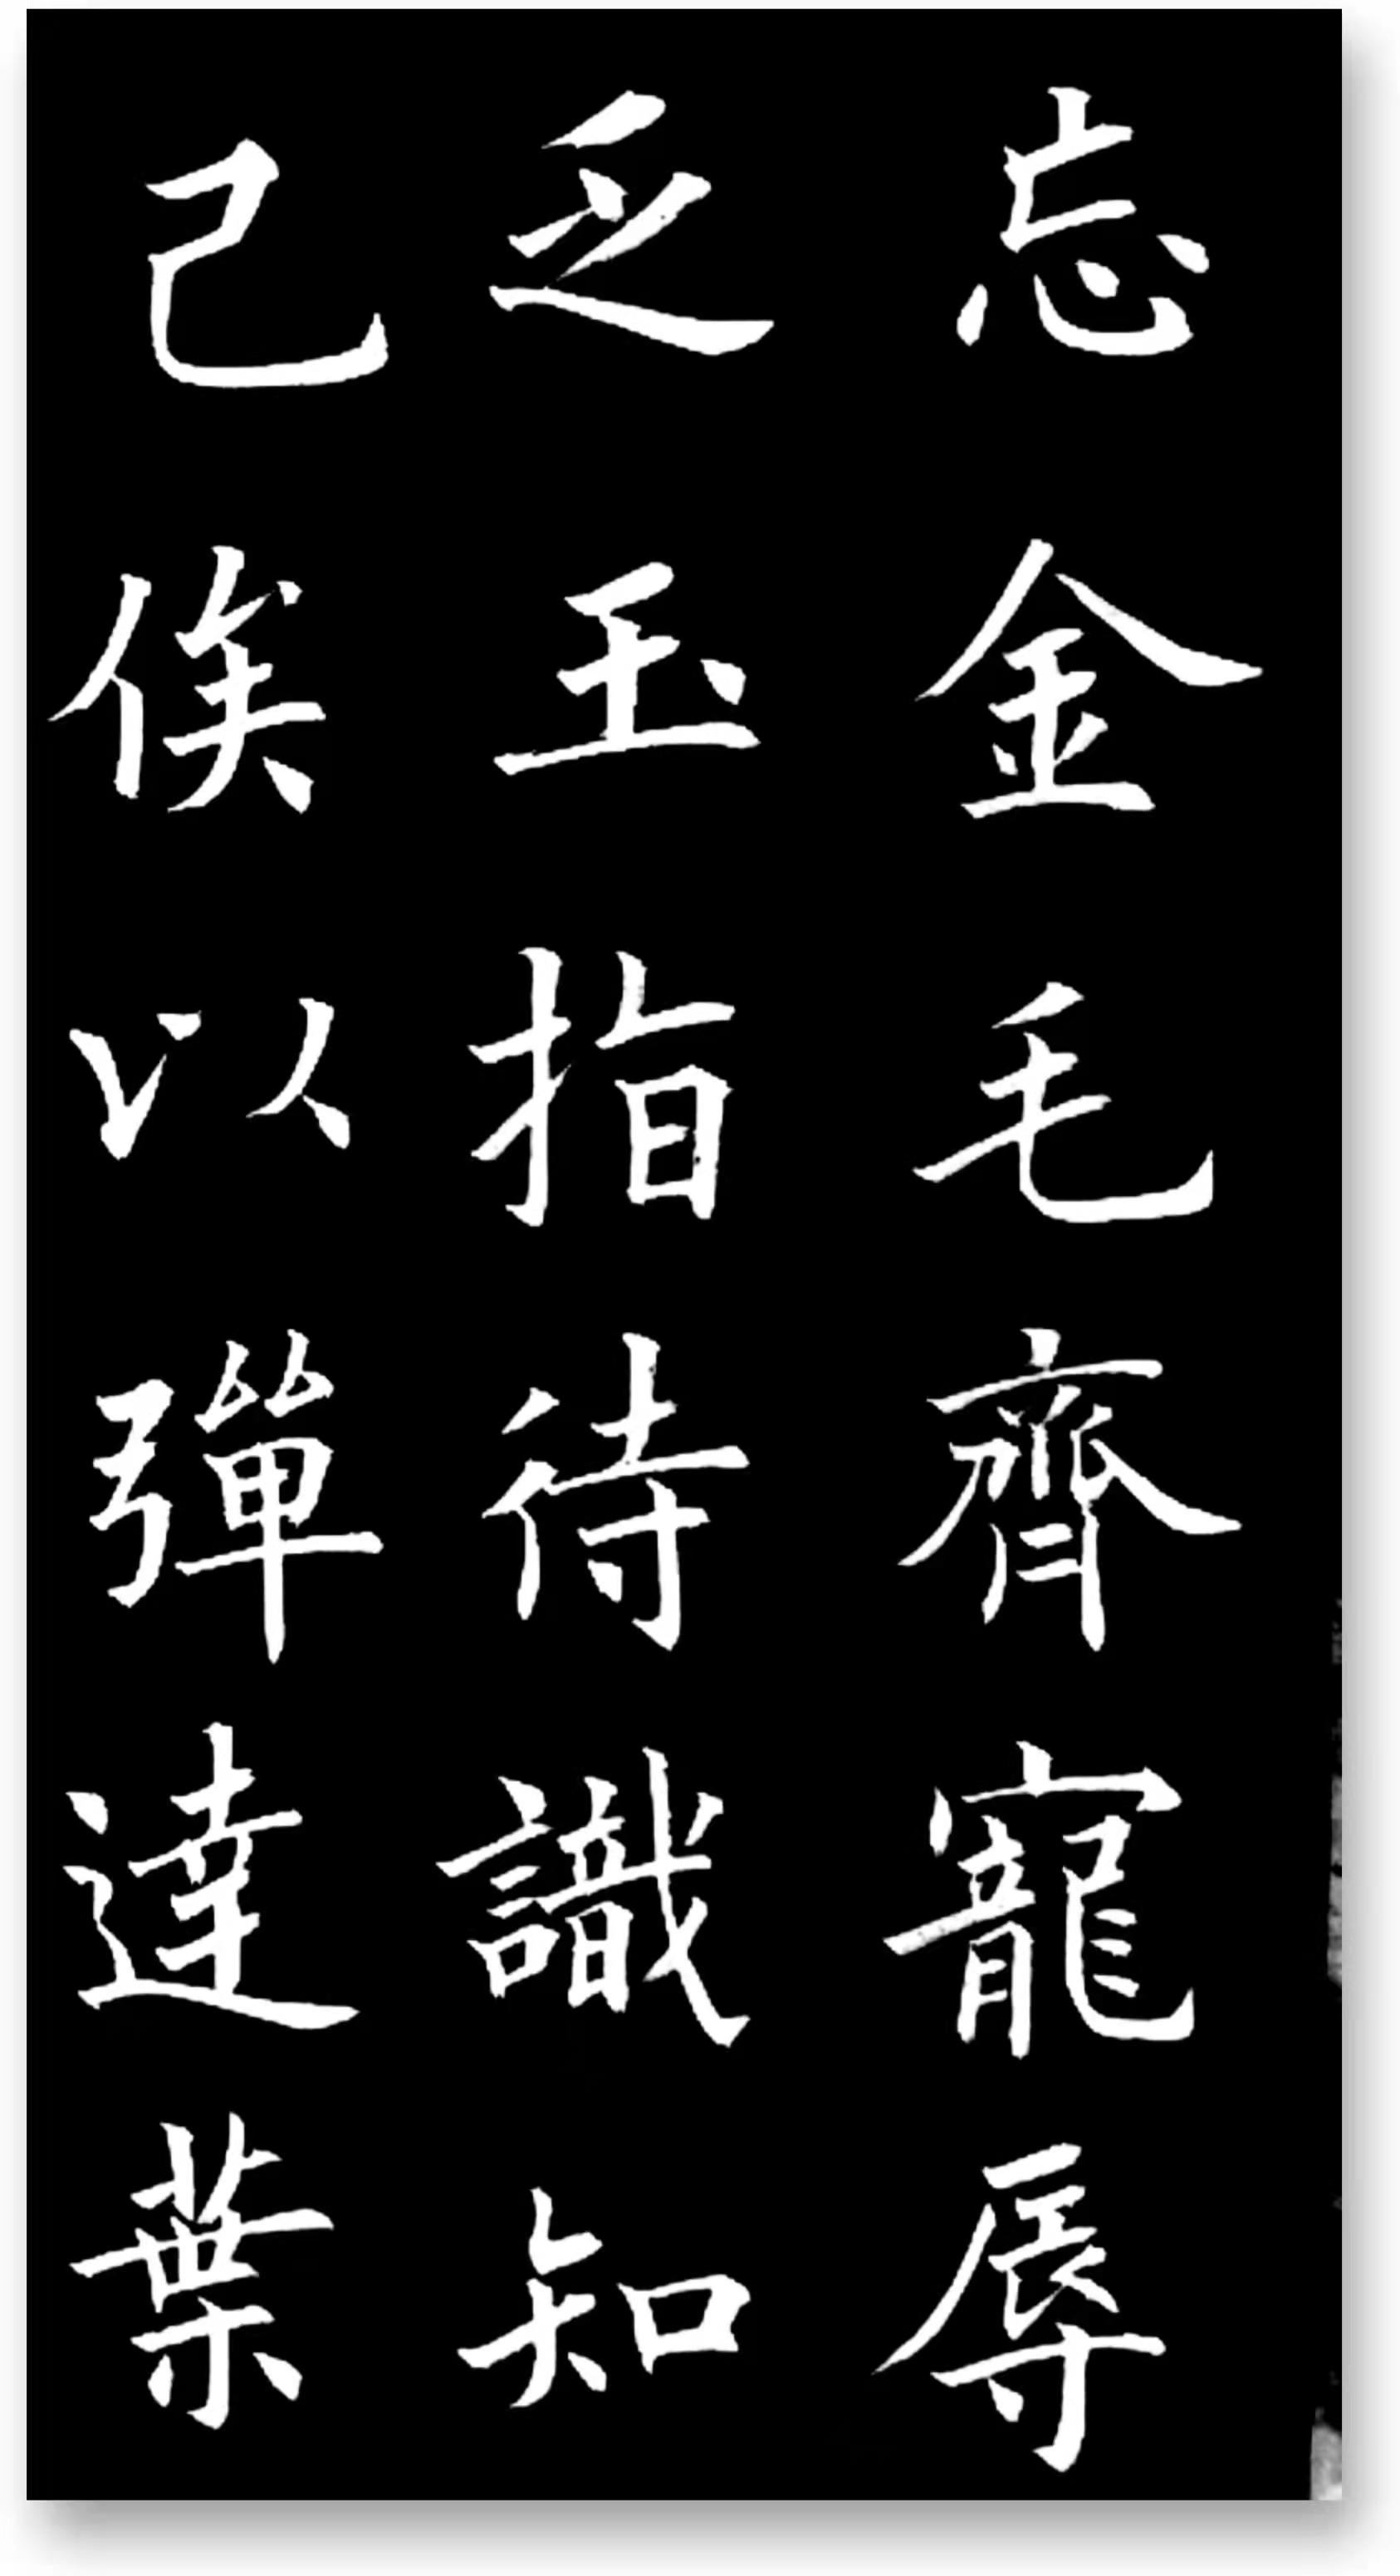 忘金毛齊寵辱
乏玉指待識知
己俟以彈達葉